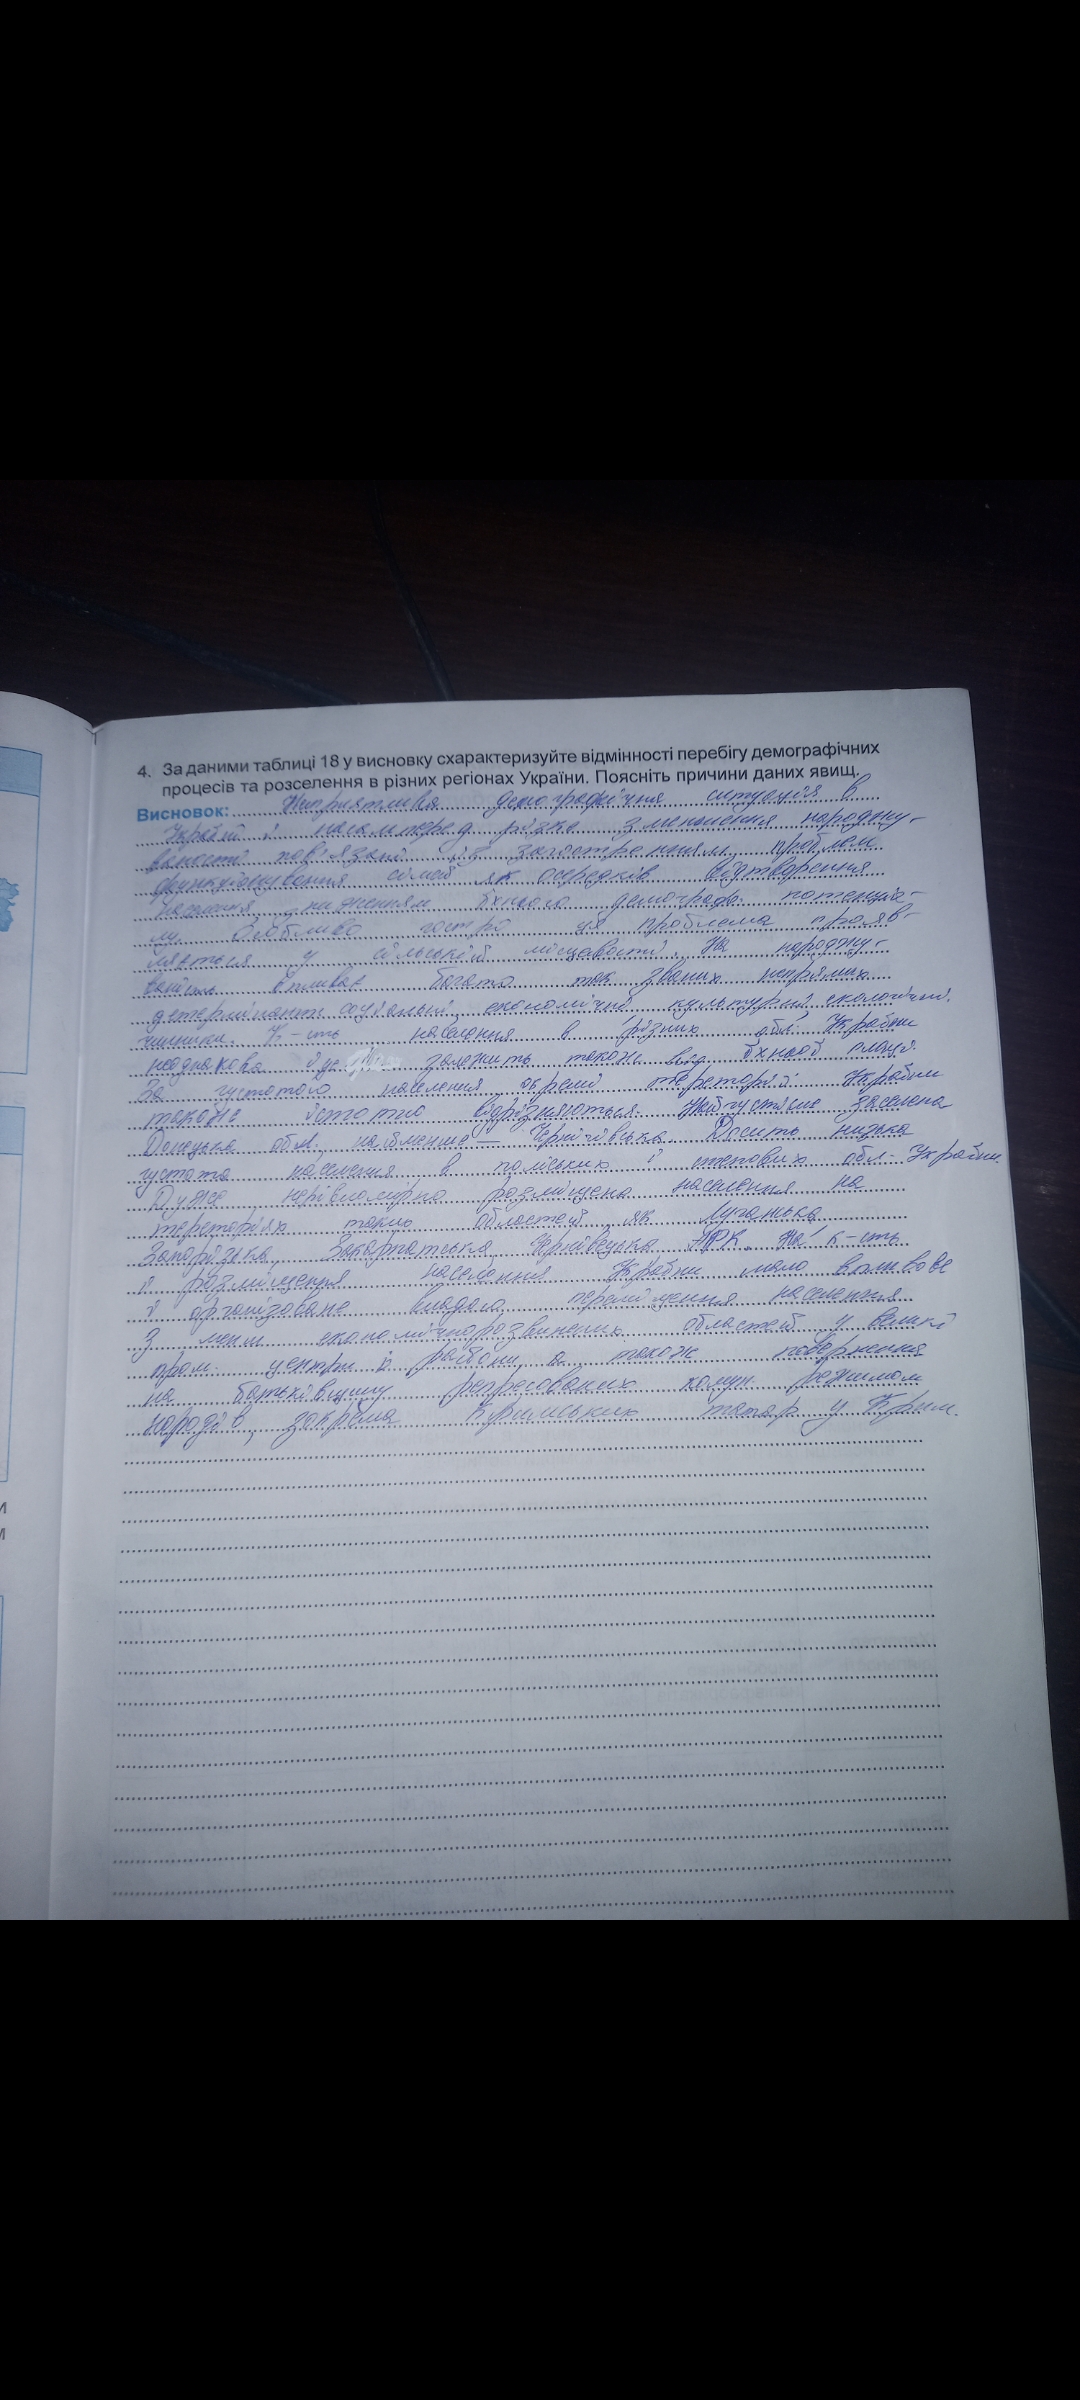 4. За даними таблиці 18 у висновку схарактеризуйте відмінності перебігу демографічних
процесів та розселення в різних регіонах України. Поясніть причини даних явищ.
Висновок: Неприятлива демографічна ситуація в
Україні і насамперед різке зменшення народжу-
ваності пов'язані із загостренням проблем
функціонування сімей як осередків відтворення
населення, їхнього демограф. потенціа-
лу. Особливо гостро ця проблема прояв-
ляється у сільській місцевості. На народжу-
ваність впливає багато так званих непрямих
детермінант: соціальні, економічні, культурні, екологічні
чинники. К-сть населення в різних обл. України
неоднакова й залежить також від їхньої площі.
За густотою населення окремі території України
також істотно відрізняються. Найгустіше заселена
Донецька обл., найменше – Чернігівська. Досить низька
густота населення в поліських і степових обл. України.
Дуже нерівномірно розміщено населення на
територіях таких областей як Луганська
Запорізька, Закарпатська, Чернівецька, АРК. На к-сть
й розміщення населення України мало впливове
й організоване владою переміщення населення
з менш економічнорозвинених областей у великі
пром. центри й райони, а також повернення
на батьківщину репресованих комун. режимом
народів, зокрема кримських татар у Крим.
и
м